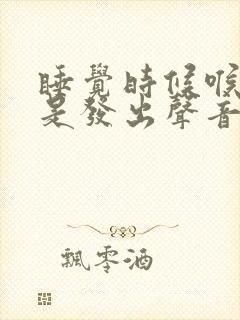 睡覺時候喉
是發出聲音
飄零酒